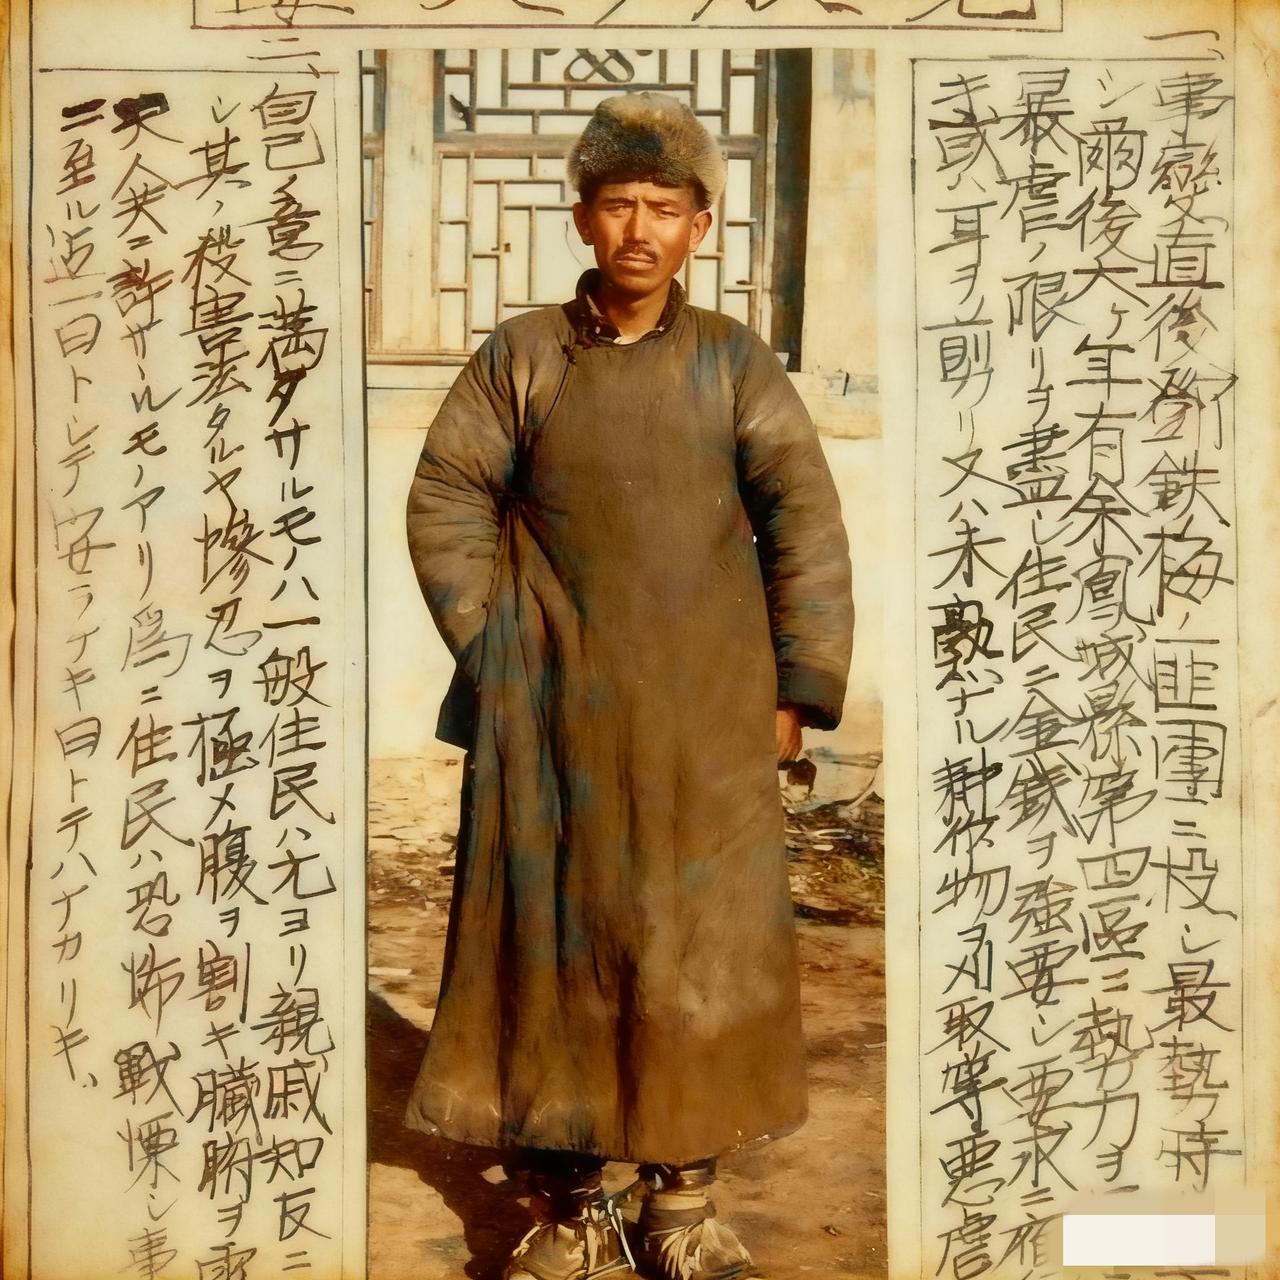 一、事變直後鄧鉄梅ノ匪團ニ投シ最勢力時
シ爾後大ヶ年有余鳳城縣第四區ニ勢力ヲ
最虐ノ限リヲ盡シ住民ニ金銭ヲ強要シ要求ニ
キ或ハ耳ヲ剪リ又ハ未熟ナル耕作物ヲ刈取等悪虐
二、自己ノ意ニ満タサルモノハ一般住民ハ尤ヨリ親戚知友ニ
シ其ノ殺害法タルヤ惨忍ヲ極メ腹ヲ割キ臓腑ヲ
天人共ニ許サールモノアリ為ニ住民ハ恐怖戰慄シ事
ニ至ル迠一日トシテ安ラケキ日トテハナカリキ、